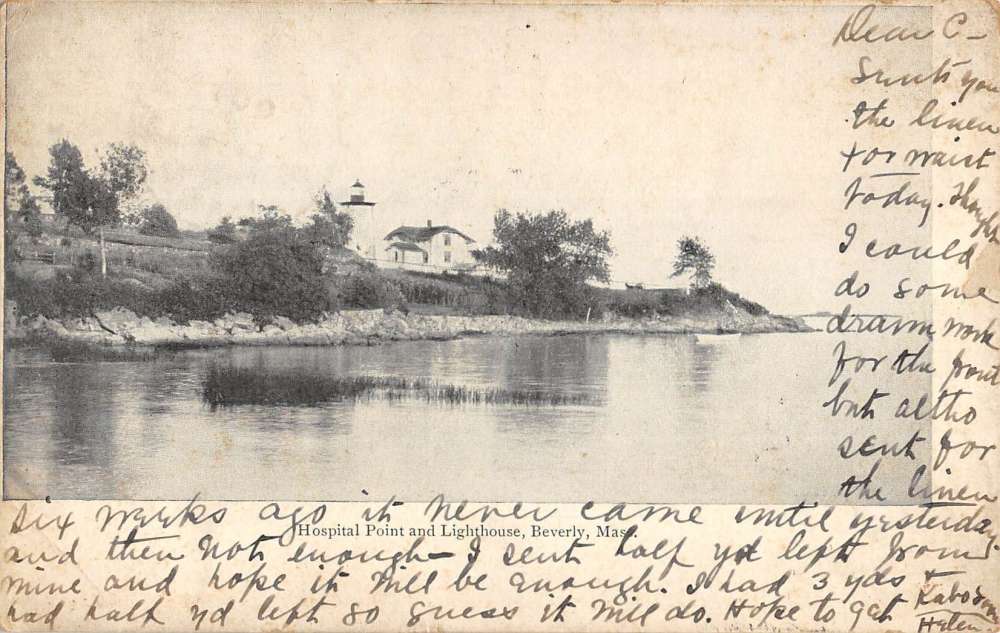 Dear C-
Sents you
the linen
for waist
today. Thought
I could
do some
drawn work
for the front
but altho
sent for
the linen
six weeks ago it never came until yesterday
Hospital Point and Lighthouse, Beverly, Mass.
and then not enough - I sent half yd left from
mine and hope it will be enough. I had 3 yds +
had half yd left so guess it will do. Hope to get
Helen